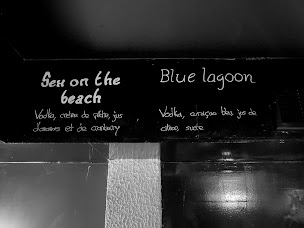 Sex on the
beach
Vodka, crème de pêche, jus
d'ananas et de cranberry
Blue lagoon
Vodka, curaçao bleu, jus de
citron, sucre